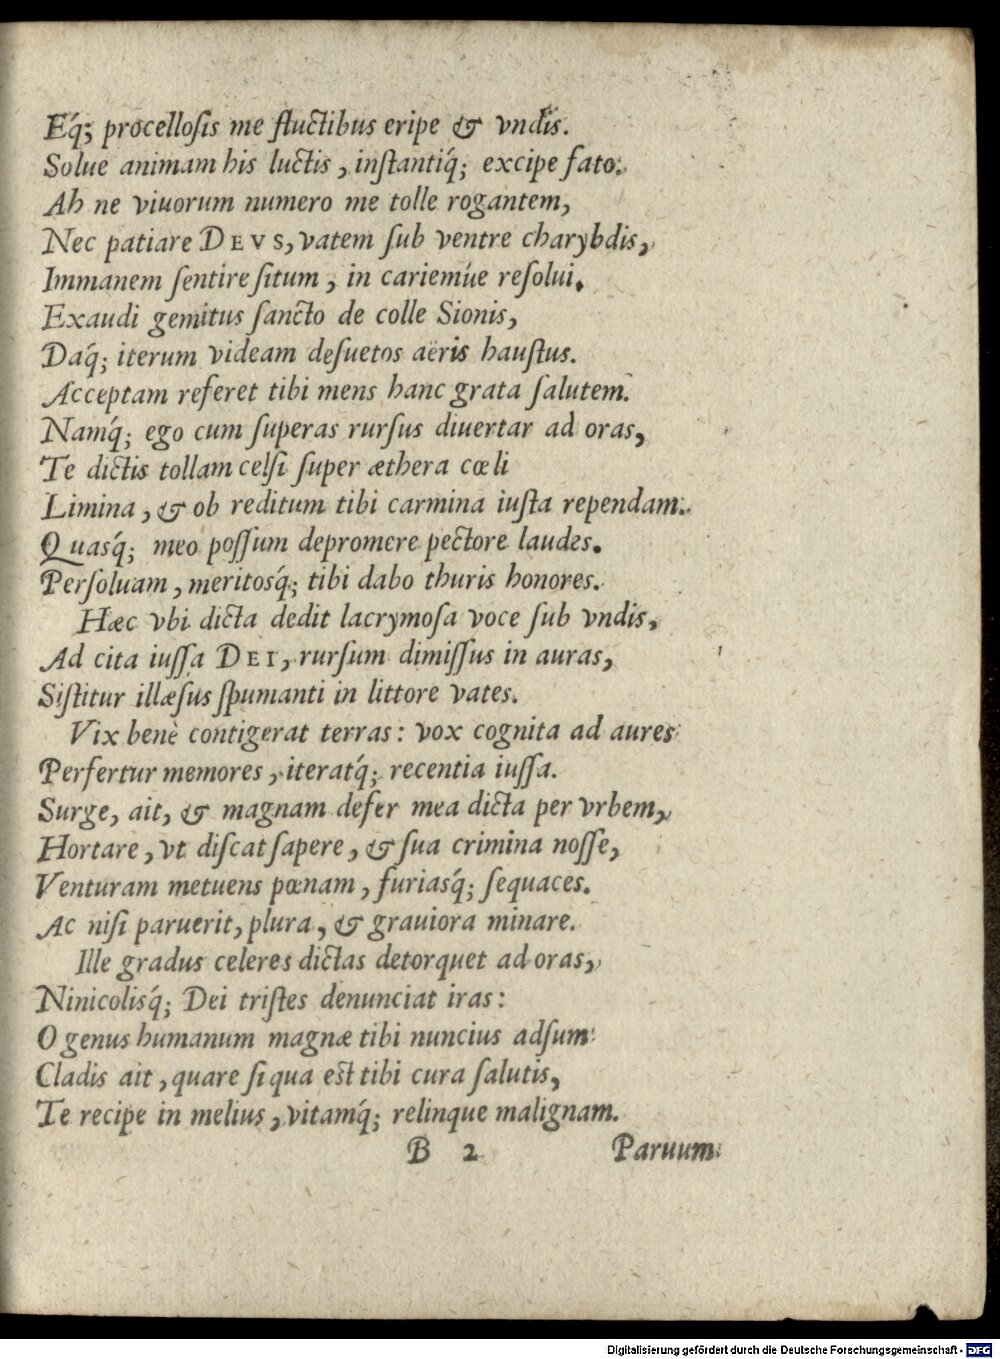 Eq́; procelloſis me fluctibus eripe & vndis.
Solue animam his luctis, inſtantiq́; excipe fato.
Ah ne viuorum numero me tolle rogantem,
Nec patiare DEVS, vatem ſub ventre charybdis,
Immanem ſentire ſitum, in cariemúe reſolui.
Exaudi gemitus ſancto de colle Sionis,
Daq́; iterum videam deſuetos aëris hauſtus.
Acceptam referet tibi mens hanc grata ſalutem.
Namq́; ego cum ſuperas rurſus diuertar ad oras,
Te dictis tollam celſi ſuper æthera cœli
Limina, & ob reditum tibi carmina iuſta rependam.
Quasq́; meo poſſum depromere pectore laudes.
Perſoluam, meritosq́; tibi dabo thuris honores.
Hæc vbi dicta dedit lacrymoſa voce ſub vndis,
Ad cita iuſſa DEI, rurſum dimiſſus in auras,
Siſtitur illæſus ſpumanti in littore vates.
Vix benè contigerat terras: vox cognita ad aures
Perfertur memores, iteratq́; recentia iuſſa.
Surge, ait, & magnam defer mea dicta per vrbem,
Hortare, vt diſcat ſapere, & ſua crimina noſſe,
Venturam metuens pœnam, furiasq́; ſequaces.
Ac niſi paruerit, plura, & grauiora minare.
Ille gradus celeres dictas detorquet ad oras,
Ninicolisq́; Dei triſtes denunciat iras:
O genus humanum magnæ tibi nuncius adſum
Cladis ait, quare ſi qua eſt tibi cura ſalutis,
Te recipe in melius, vitamq́; relinque malignam.
B 2 Paruum
Digitalisierung gefördert durch die Deutsche Forschungsgemeinschaft - DFG